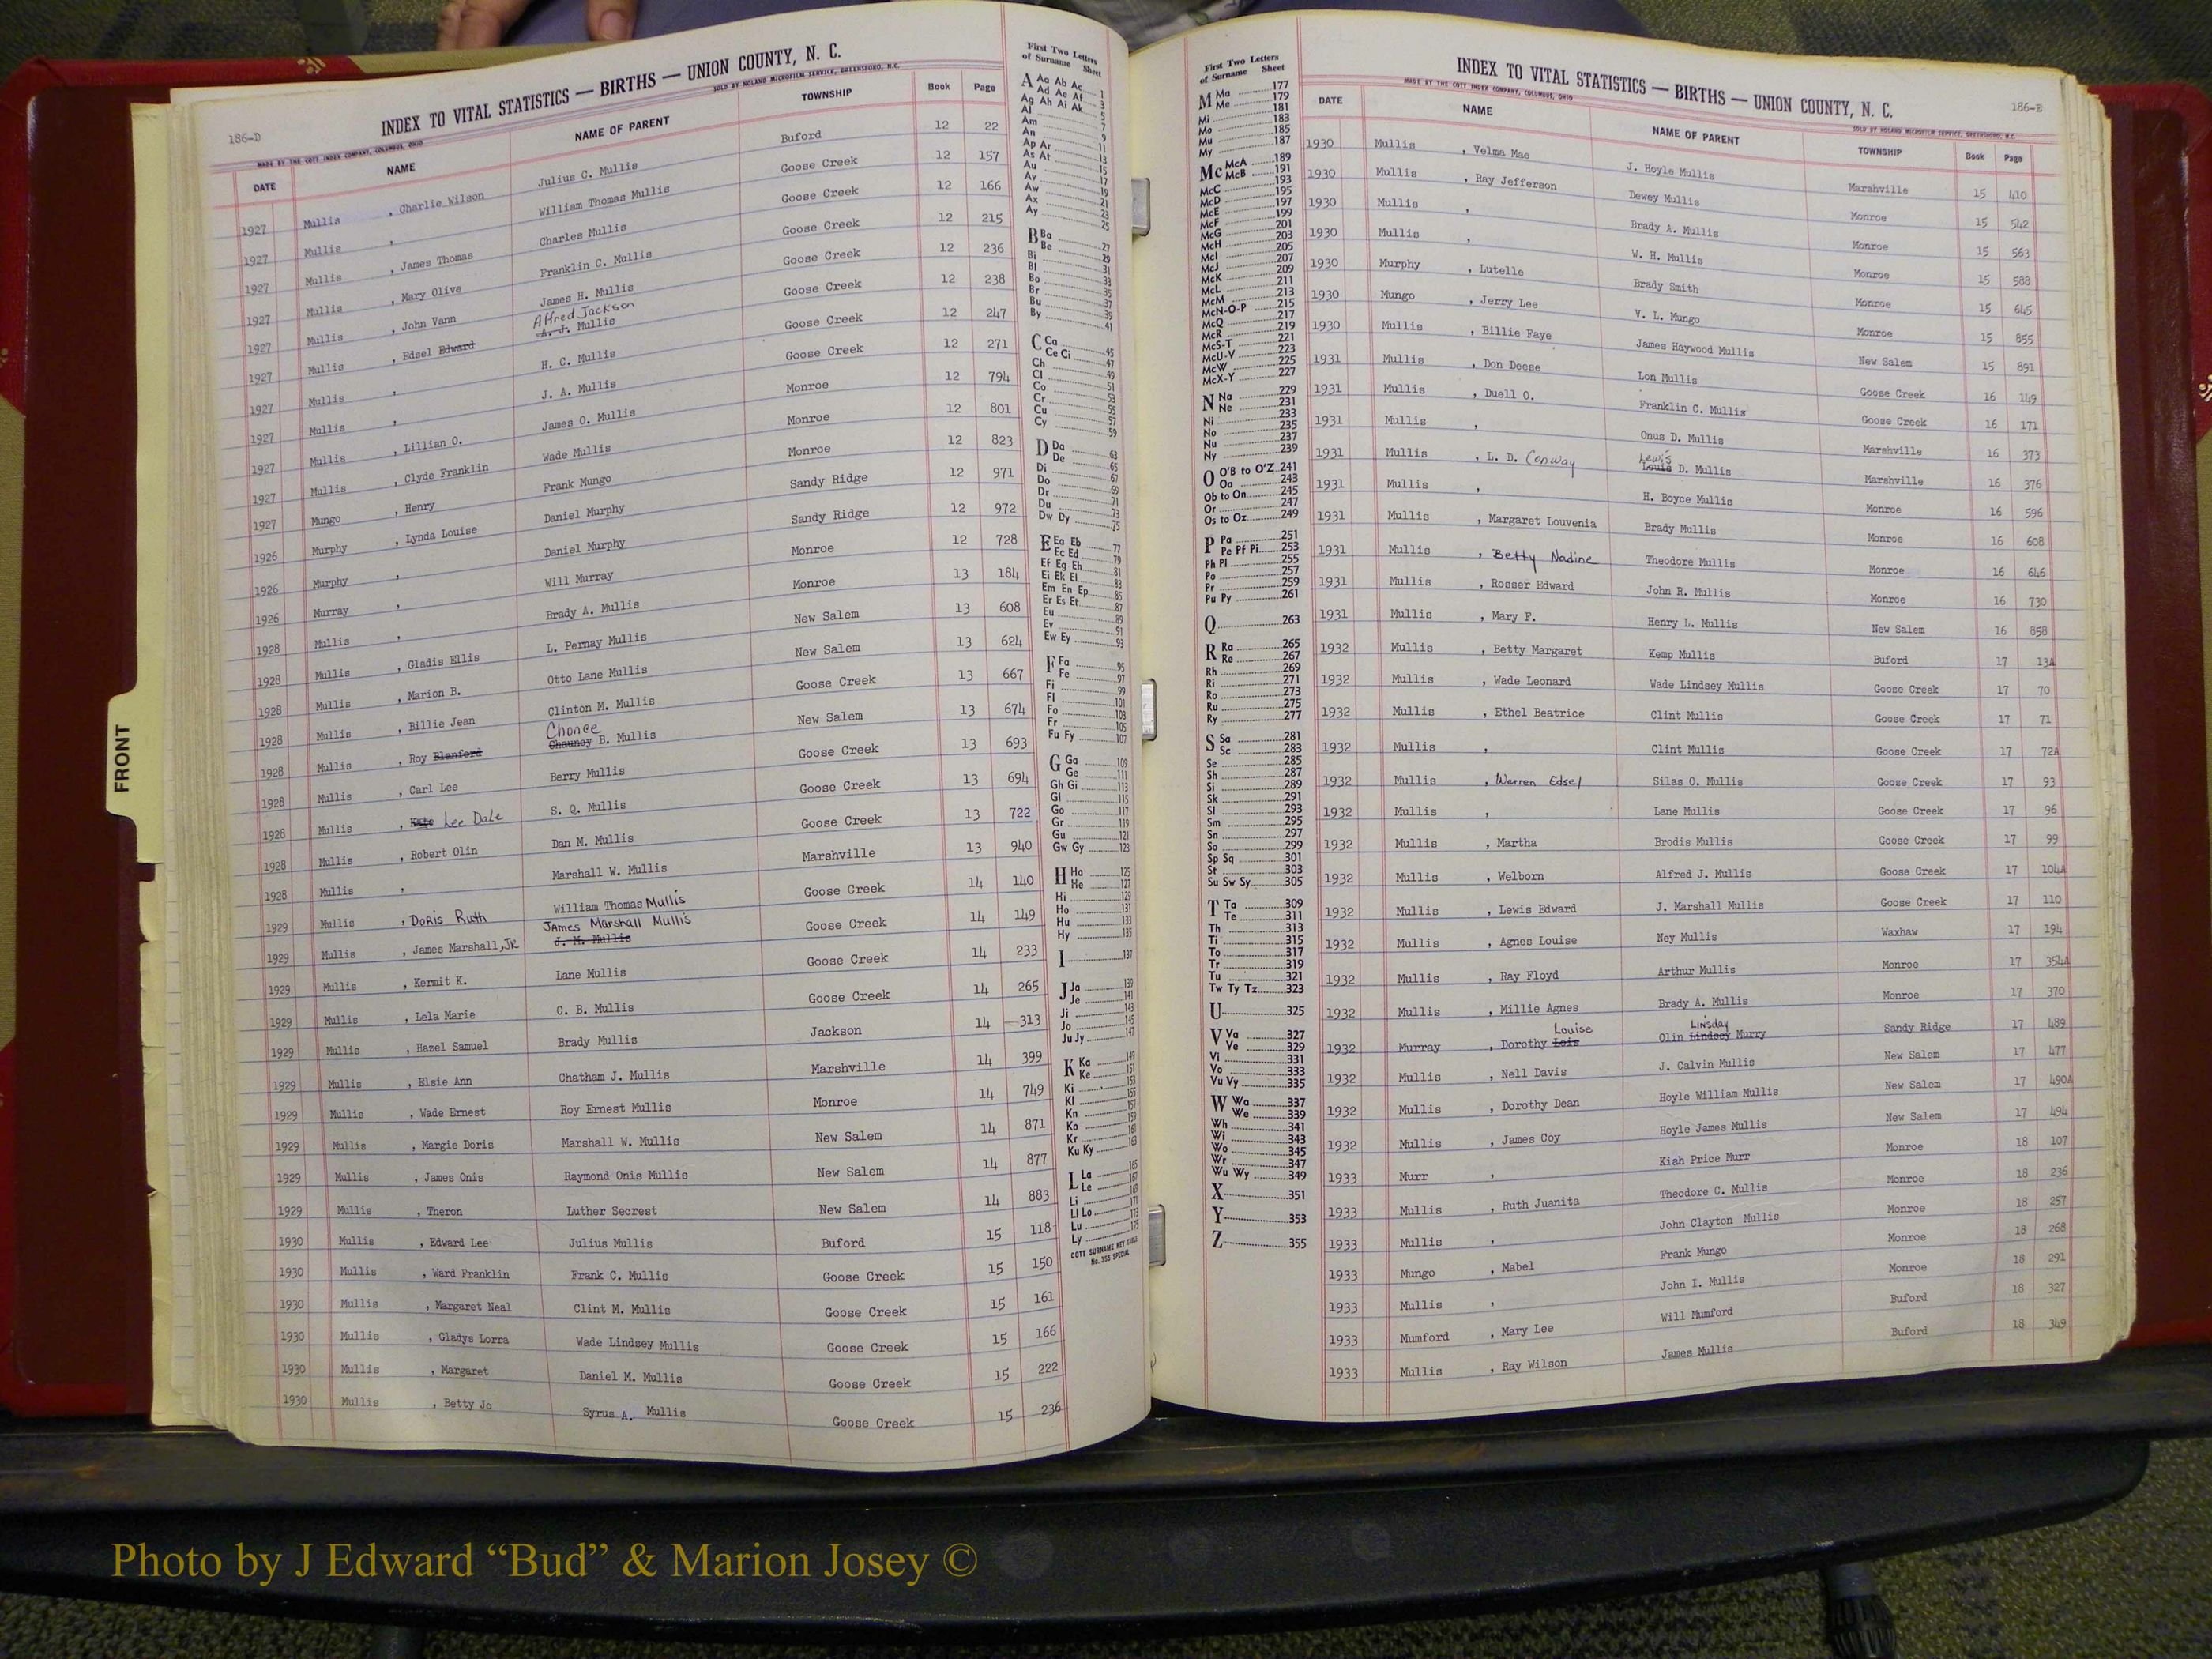 186-D
INDEX TO VITAL STATISTICS — BIRTHS — UNION COUNTY, N. C.
MADE BY THE COTT INDEX COMPANY, COLUMBUS, OHIO SOLD BY NOLAND MICROFILM SERVICE, GREENSBORO, N.C.
DATE NAME NAME OF PARENT TOWNSHIP Book Page
1927 Mullis , Charlie Wilson Julius C. Mullis Buford 12 22
1927 Mullis , William Thomas Mullis Goose Creek 12 157
1927 Mullis , James Thomas Charles Mullis Goose Creek 12 166
1927 Mullis , Mary Olive Franklin C. Mullis Goose Creek 12 215
1927 Mullis , John Vann James H. Mullis Goose Creek 12 236
Alfred Jackson
1927 Mullis , Edsel Edward A. J. Mullis Goose Creek 12 238
1927 Mullis , H. C. Mullis Goose Creek 12 247
1927 Mullis , J. A. Mullis Goose Creek 12 271
1927 Mullis , Lillian O. James O. Mullis Monroe 12 794
1927 Mullis , Clyde Franklin Wade Mullis Monroe 12 801
1927 Mungo , Henry Frank Mungo Monroe 12 823
1926 Murphy , Lynda Louise Daniel Murphy Sandy Ridge 12 971
1926 Murphy , Daniel Murphy Sandy Ridge 12 972
1926 Murray , Will Murray Monroe 12 728
1928 Mullis , Brady A. Mullis Monroe 13 184
1928 Mullis , Gladis Ellis L. Pernay Mullis New Salem 13 608
1928 Mullis , Marion B. Otto Lane Mullis New Salem 13 624
1928 Mullis , Billie Jean Clinton M. Mullis Goose Creek 13 667
Chonce
1928 Mullis , Roy Blanford Chauncy B. Mullis New Salem 13 674
1928 Mullis , Carl Lee Berry Mullis Goose Creek 13 693
1928 Mullis , Lee Dale S. Q. Mullis Goose Creek 13 694
1928 Mullis , Robert Olin Dan M. Mullis Goose Creek 13 722
1928 Mullis , Marshall W. Mullis Marshville 13 940
1929 Mullis , Doris Ruth William Thomas Mullis Goose Creek 14 140
James Marshall Mullis
1929 Mullis , James Marshall, Jr. J. M. Mullis Goose Creek 14 149
1929 Mullis , Kermit K. Lane Mullis Goose Creek 14 233
1929 Mullis , Lela Marie C. B. Mullis Goose Creek 14 265
1929 Mullis , Hazel Samuel Brady Mullis Jackson 14 313
1929 Mullis , Elsie Ann Chatham J. Mullis Marshville 14 399
1929 Mullis , Wade Ernest Roy Ernest Mullis Monroe 14 749
1929 Mullis , Margie Doris Marshall W. Mullis New Salem 14 871
1929 Mullis , James Onis Raymond Onis Mullis New Salem 14 877
1929 Mullis , Theron Luther Secrest New Salem 14 883
1930 Mullis , Edward Lee Julius Mullis Buford 15 118
1930 Mullis , Ward Franklin Frank C. Mullis Goose Creek 15 150
1930 Mullis , Margaret Neal Clint M. Mullis Goose Creek 15 161
1930 Mullis , Gladys Lorra Wade Lindsey Mullis Goose Creek 15 166
1930 Mullis , Margaret Daniel M. Mullis Goose Creek 15 222
1930 Mullis , Betty Jo Syrus A. Mullis Goose Creek 15 236
FRONT
First Two Letters
of Surname Sheet
A Aa Ab Ac 1
Ad Ae Af 3
Ag Ah Ai Ak 5
Al 7
Am 9
An 11
Ap Ar 13
As At 15
Au 17
Av 19
Aw 21
Ax 23
Ay 25
B Ba 27
Be 29
Bi 31
Bl 33
Bo 35
Br 37
Bu 39
By 41
C Ca 45
Ce Ci 47
Ch 49
Cl 51
Co 53
Cr 55
Cu 57
Cy 59
D Da 63
De 65
Di 67
Do 69
Dr 71
Du 73
Dw Dy 75
E Ea Eb 77
Ec Ed 79
Ef Eg Eh 81
Ei Ek El 83
Em En Ep 85
Er Es Et 87
Eu 89
Ev 91
Ew Ey 93
F Fa 95
Fe 97
Fi 99
Fl 101
Fo 103
Fr 105
Fu Fy 107
G Ga 109
Ge 111
Gh Gi 113
Gl 115
Go 117
Gr 119
Gu 121
Gw Gy 123
H Ha 125
He 127
Hi 129
Ho 131
Hu 133
Hy 135
I 137
J Ja 139
Je 141
Ji 143
Jo 145
Ju Jy 147
K Ka 149
Ke 151
Ki 153
Kl 155
Kn 157
Ko 159
Kr 161
Ku Ky 163
L La 165
Le 167
Li 169
Ll Lo 171
Lu 173
Ly 175
COTT SURNAME KEY TABLE
No. 355 SPECIAL
First Two Letters
of Surname Sheet
M Ma 177
Me 179
Mi 181
Mo 183
Mu 185
My 187
Mc McA 189
McB 191
McC 193
McD 195
McE 197
McF 199
McG 201
McH 203
McI 205
McJ 207
McK 209
McL 211
McM 213
McN-O-P 215
McQ 217
McR 219
McS-T 221
McU-V 223
McW 225
McX-Y 227
N Na 229
Ne 231
Ni 233
No 235
Nu 237
Ny 239
O O'B to O'Z 241
Oa 243
Ob to On 245
Or 247
Os to Oz 249
P Pa 251
Pe Pf Pi 253
Ph Pl 255
Po 257
Pr 259
Pu Py 261
Q 263
R Ra 265
Re 267
Rh 269
Ri 271
Ro 273
Ru 275
Ry 277
S Sa 281
Sc 283
Se 285
Sh 287
Si 289
Sk 291
Sl 293
Sm 295
Sn 297
So 299
Sp Sq 301
St 303
Su Sw Sy 305
T Ta 309
Te 311
Th 313
Ti 315
To 317
Tr 319
Tu 321
Tw Ty Tz 323
U 325
V Va 327
Ve 329
Vi 331
Vo 333
Vu Vy 335
W Wa 337
We 339
Wh 341
Wi 343
Wo 345
Wr 347
Wu Wy 349
X 351
Y 353
Z 355
INDEX TO VITAL STATISTICS — BIRTHS — UNION COUNTY, N. C.
186-E
MADE BY THE COTT INDEX COMPANY, COLUMBUS, OHIO SOLD BY NOLAND MICROFILM SERVICE, GREENSBORO, N.C.
DATE NAME NAME OF PARENT TOWNSHIP Book Page
1930 Mullis , Velma Mae J. Hoyle Mullis Marshville 15 410
1930 Mullis , Ray Jefferson Dewey Mullis Monroe 15 542
1930 Mullis , Brady A. Mullis Monroe 15 563
1930 Mullis , W. H. Mullis Monroe 15 588
1930 Murphy , Lutelle Brady Smith Monroe 15 645
1930 Mungo , Jerry Lee V. L. Mungo Monroe 15 855
1930 Mullis , Billie Faye James Haywood Mullis New Salem 15 891
1931 Mullis , Don Deese Lon Mullis Goose Creek 16 149
1931 Mullis , Duell O. Franklin C. Mullis Goose Creek 16 171
1931 Mullis , Onus D. Mullis Marshville 16 373
Lewis
1931 Mullis , L. D. Conway Louis D. Mullis Marshville 16 376
1931 Mullis , H. Boyce Mullis Monroe 16 596
1931 Mullis , Margaret Louvenia Brady Mullis Monroe 16 608
1931 Mullis , Betty Nadine Theodore Mullis Monroe 16 646
1931 Mullis , Rosser Edward John R. Mullis Monroe 16 730
1931 Mullis , Mary F. Henry L. Mullis New Salem 16 858
1932 Mullis , Betty Margaret Kemp Mullis Buford 17 13A
1932 Mullis , Wade Leonard Wade Lindsey Mullis Goose Creek 17 70
1932 Mullis , Ethel Beatrice Clint Mullis Goose Creek 17 71
1932 Mullis , Clint Mullis Goose Creek 17 72A
1932 Mullis , Warren Edsel Silas O. Mullis Goose Creek 17 93
1932 Mullis , Lane Mullis Goose Creek 17 96
1932 Mullis , Martha Brodis Mullis Goose Creek 17 99
1932 Mullis , Welborn Alfred J. Mullis Goose Creek 17 104A
1932 Mullis , Lewis Edward J. Marshall Mullis Goose Creek 17 110
1932 Mullis , Agnes Louise Ney Mullis Waxhaw 17 194
1932 Mullis , Ray Floyd Arthur Mullis Monroe 17 354A
1932 Mullis , Millie Agnes Brady A. Mullis Monroe 17 370
Louise Linsday
1932 Murray , Dorothy Lois Olin Lindsey Murry Sandy Ridge 17 489
1932 Mullis , Nell Davis J. Calvin Mullis New Salem 17 477
1932 Mullis , Dorothy Dean Hoyle William Mullis New Salem 17 490A
1932 Mullis , James Coy Hoyle James Mullis New Salem 17 494
1933 Murr , Kiah Price Murr Monroe 18 107
1933 Mullis , Ruth Juanita Theodore C. Mullis Monroe 18 236
1933 Mullis , John Clayton Mullis Monroe 18 257
1933 Mungo , Mabel Frank Mungo Monroe 18 268
1933 Mullis , John I. Mullis Monroe 18 291
1933 Mumford , Mary Lee Will Mumford Buford 18 327
1933 Mullis , Ray Wilson James Mullis Buford 18 349
Photo by J Edward “Bud” & Marion Josey ©